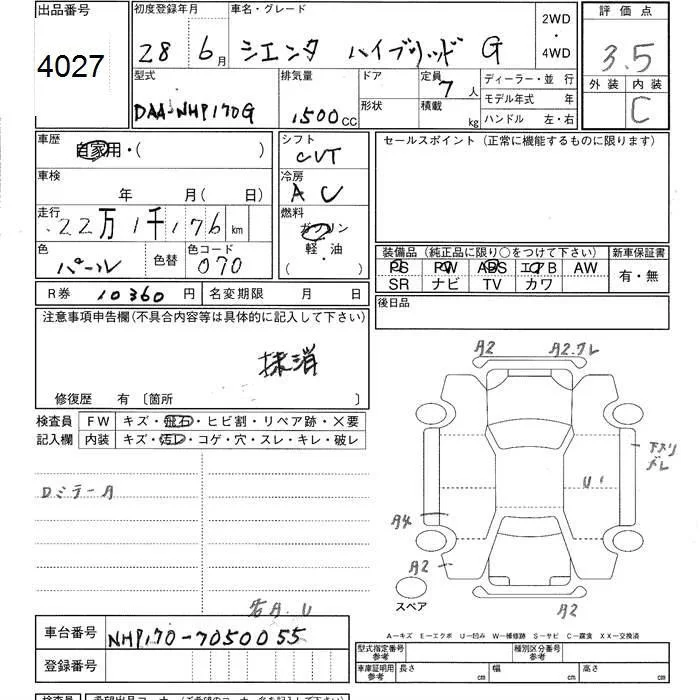 出品番号
4027
初度登録年月 車名・グレード
28 6月 シエンタ ハイブリッド G
2WD
・
4WD
評価点
3.5
外装 内装
C
型式 排気量 ドア 定員 7人 ディーラー・並 行
DAA-NHP170G 1500cc 形状 積載 kg モデル年式 年
ハンドル 左・右
車歴 自家用・( ) シフト CVT
セールスポイント (正常に機能するものに限ります)
車検 年 月( 日) 冷房 AC
走行 22万1千176km 燃料 ガソリン
軽・油
( )
色 パール 色替 色コード 070
装備品 (純正品に限り○をつけて下さい) 新車保証書
PS PW ABS エアB AW 有・無
SR ナビ TV カワ
R券 10360円 名変期限 月 日
後日品
注意事項申告欄(不具合内容等は具体的に記入して下さい)
抹消
修復歴 有 〔箇所 〕
検査員 FW キズ・飛石・ヒビ割・リペア跡・×要
記入欄 内装 キズ・汚レ・コゲ・穴・スレ・キレ・破レ
DミラーA
A2 A2.ワレ
下スリ
ズレ
U'
A4
A2
A2
スペア
右A.U
A−キズ E−エクボ U−凹み W−補修跡 S−サビ C−腐食 XX−交換済
車台番号 NHP170-7050055
登録番号
型式指定番号
参考
種別区分番号
参考
車庫証明用
参考
長さ cm 幅 cm 高さ cm